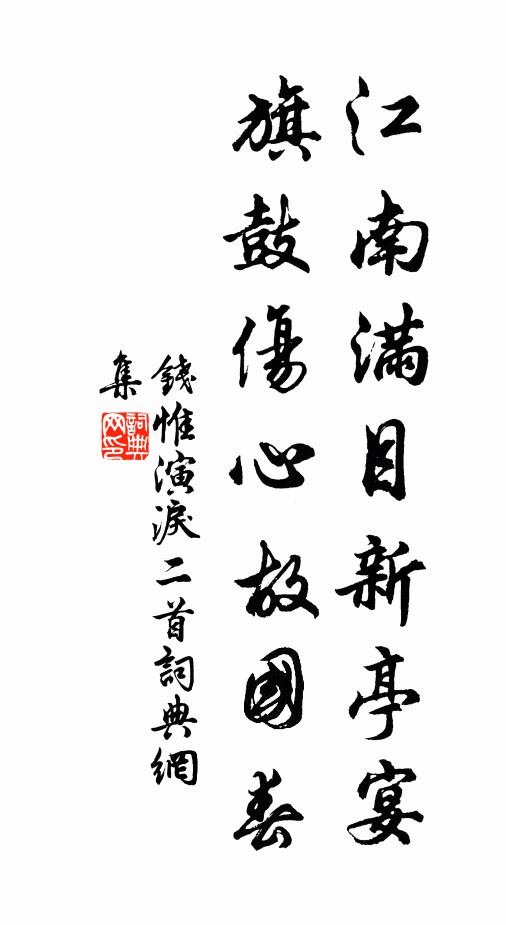 江南滿目新亭宴
旗鼓傷心故國春
錢惟演淚二首詞典網
集
詞典
网印